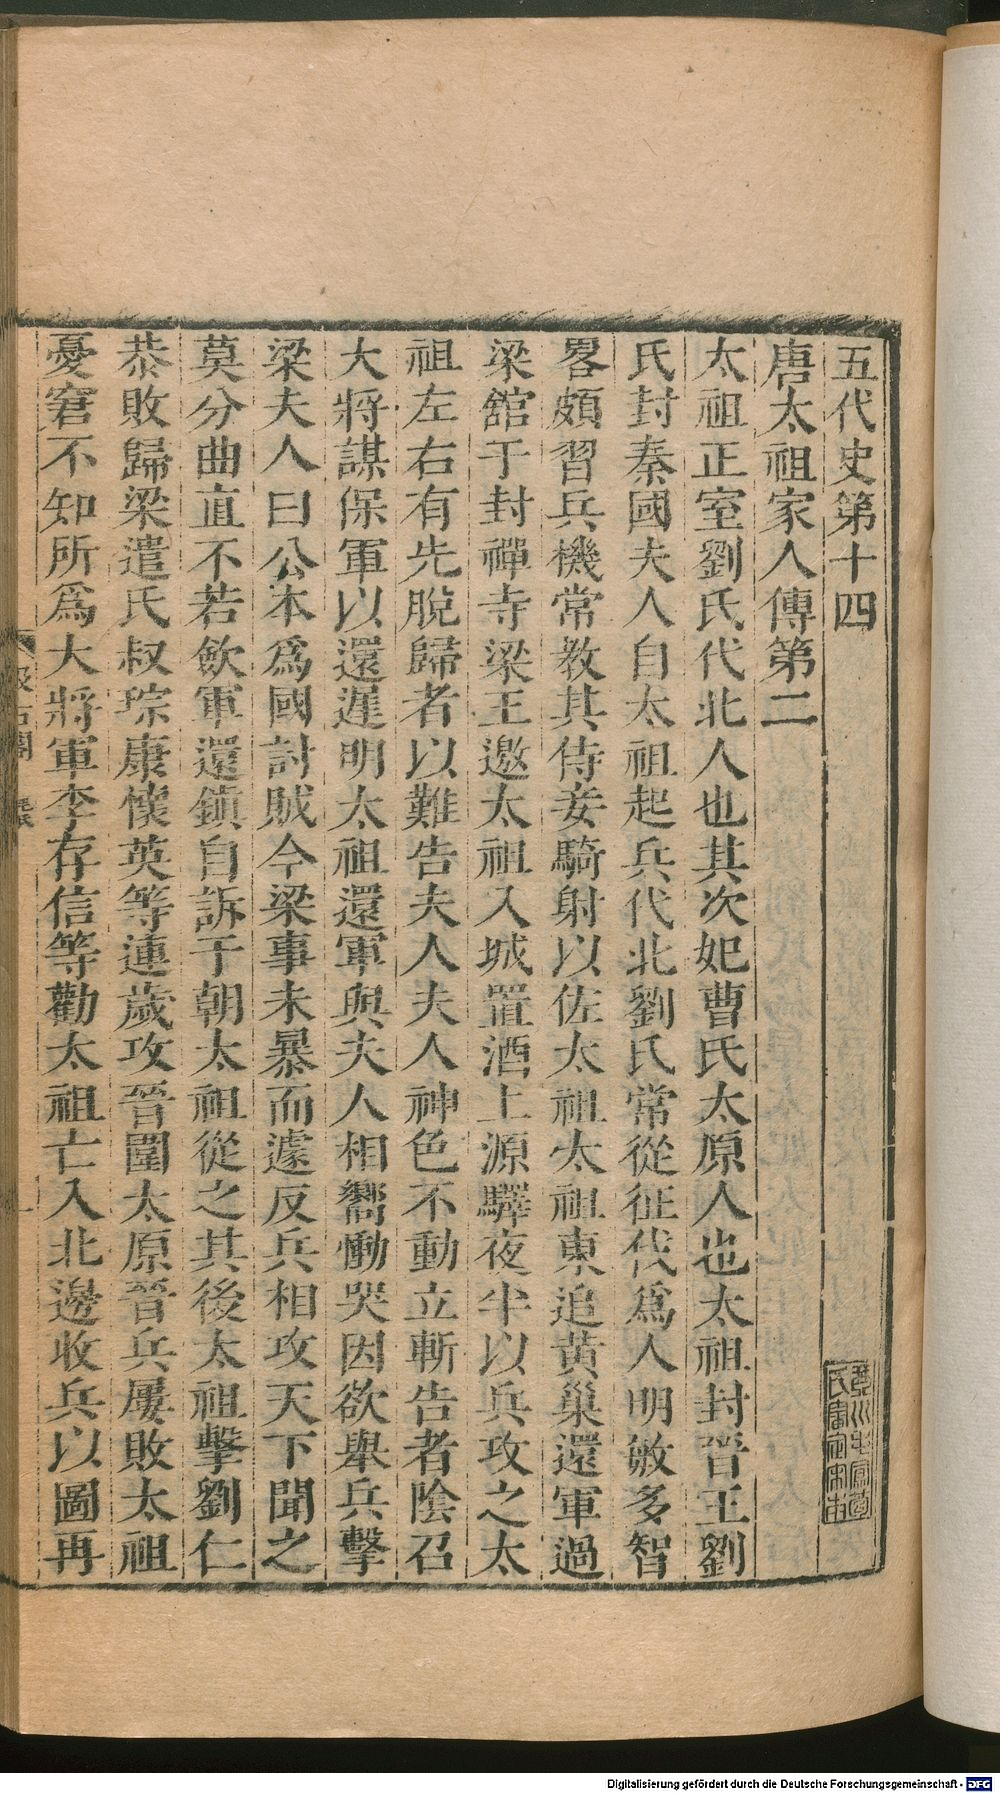 五代史第十四
唐太祖家人傳第二
太祖正室劉氏代北人也其次妃曹氏太原人也太祖封晉王劉
氏封秦國夫人自太祖起兵代北劉氏常從征伐爲人明敏多智
畧頗習兵機常教其侍妾騎射以佐太祖太祖東追黃巢還軍過
梁舘于封禪寺梁王邀太祖入城置酒上源驛夜半以兵攻之太
祖左右有先脫歸者以難告夫人夫人神色不動立斬告者陰召
大將謀保軍以還遲明太祖還軍與夫人相嚮慟哭因欲舉兵擊
梁夫人曰公本爲國討賊今梁事未暴而遽反兵相攻天下聞之
莫分曲直不若歛軍還鎭自訴于朝太祖從之其後太祖擊劉仁
恭敗歸梁遣氏叔琮康懷英等連歲攻晉圍太原晉兵屢敗太祖
憂窘不知所爲大將軍李存信等勸太祖亡入北邊收兵以圖再
Digitalisierung gefördert durch die Deutsche Forschungsgemeinschaft - DFG